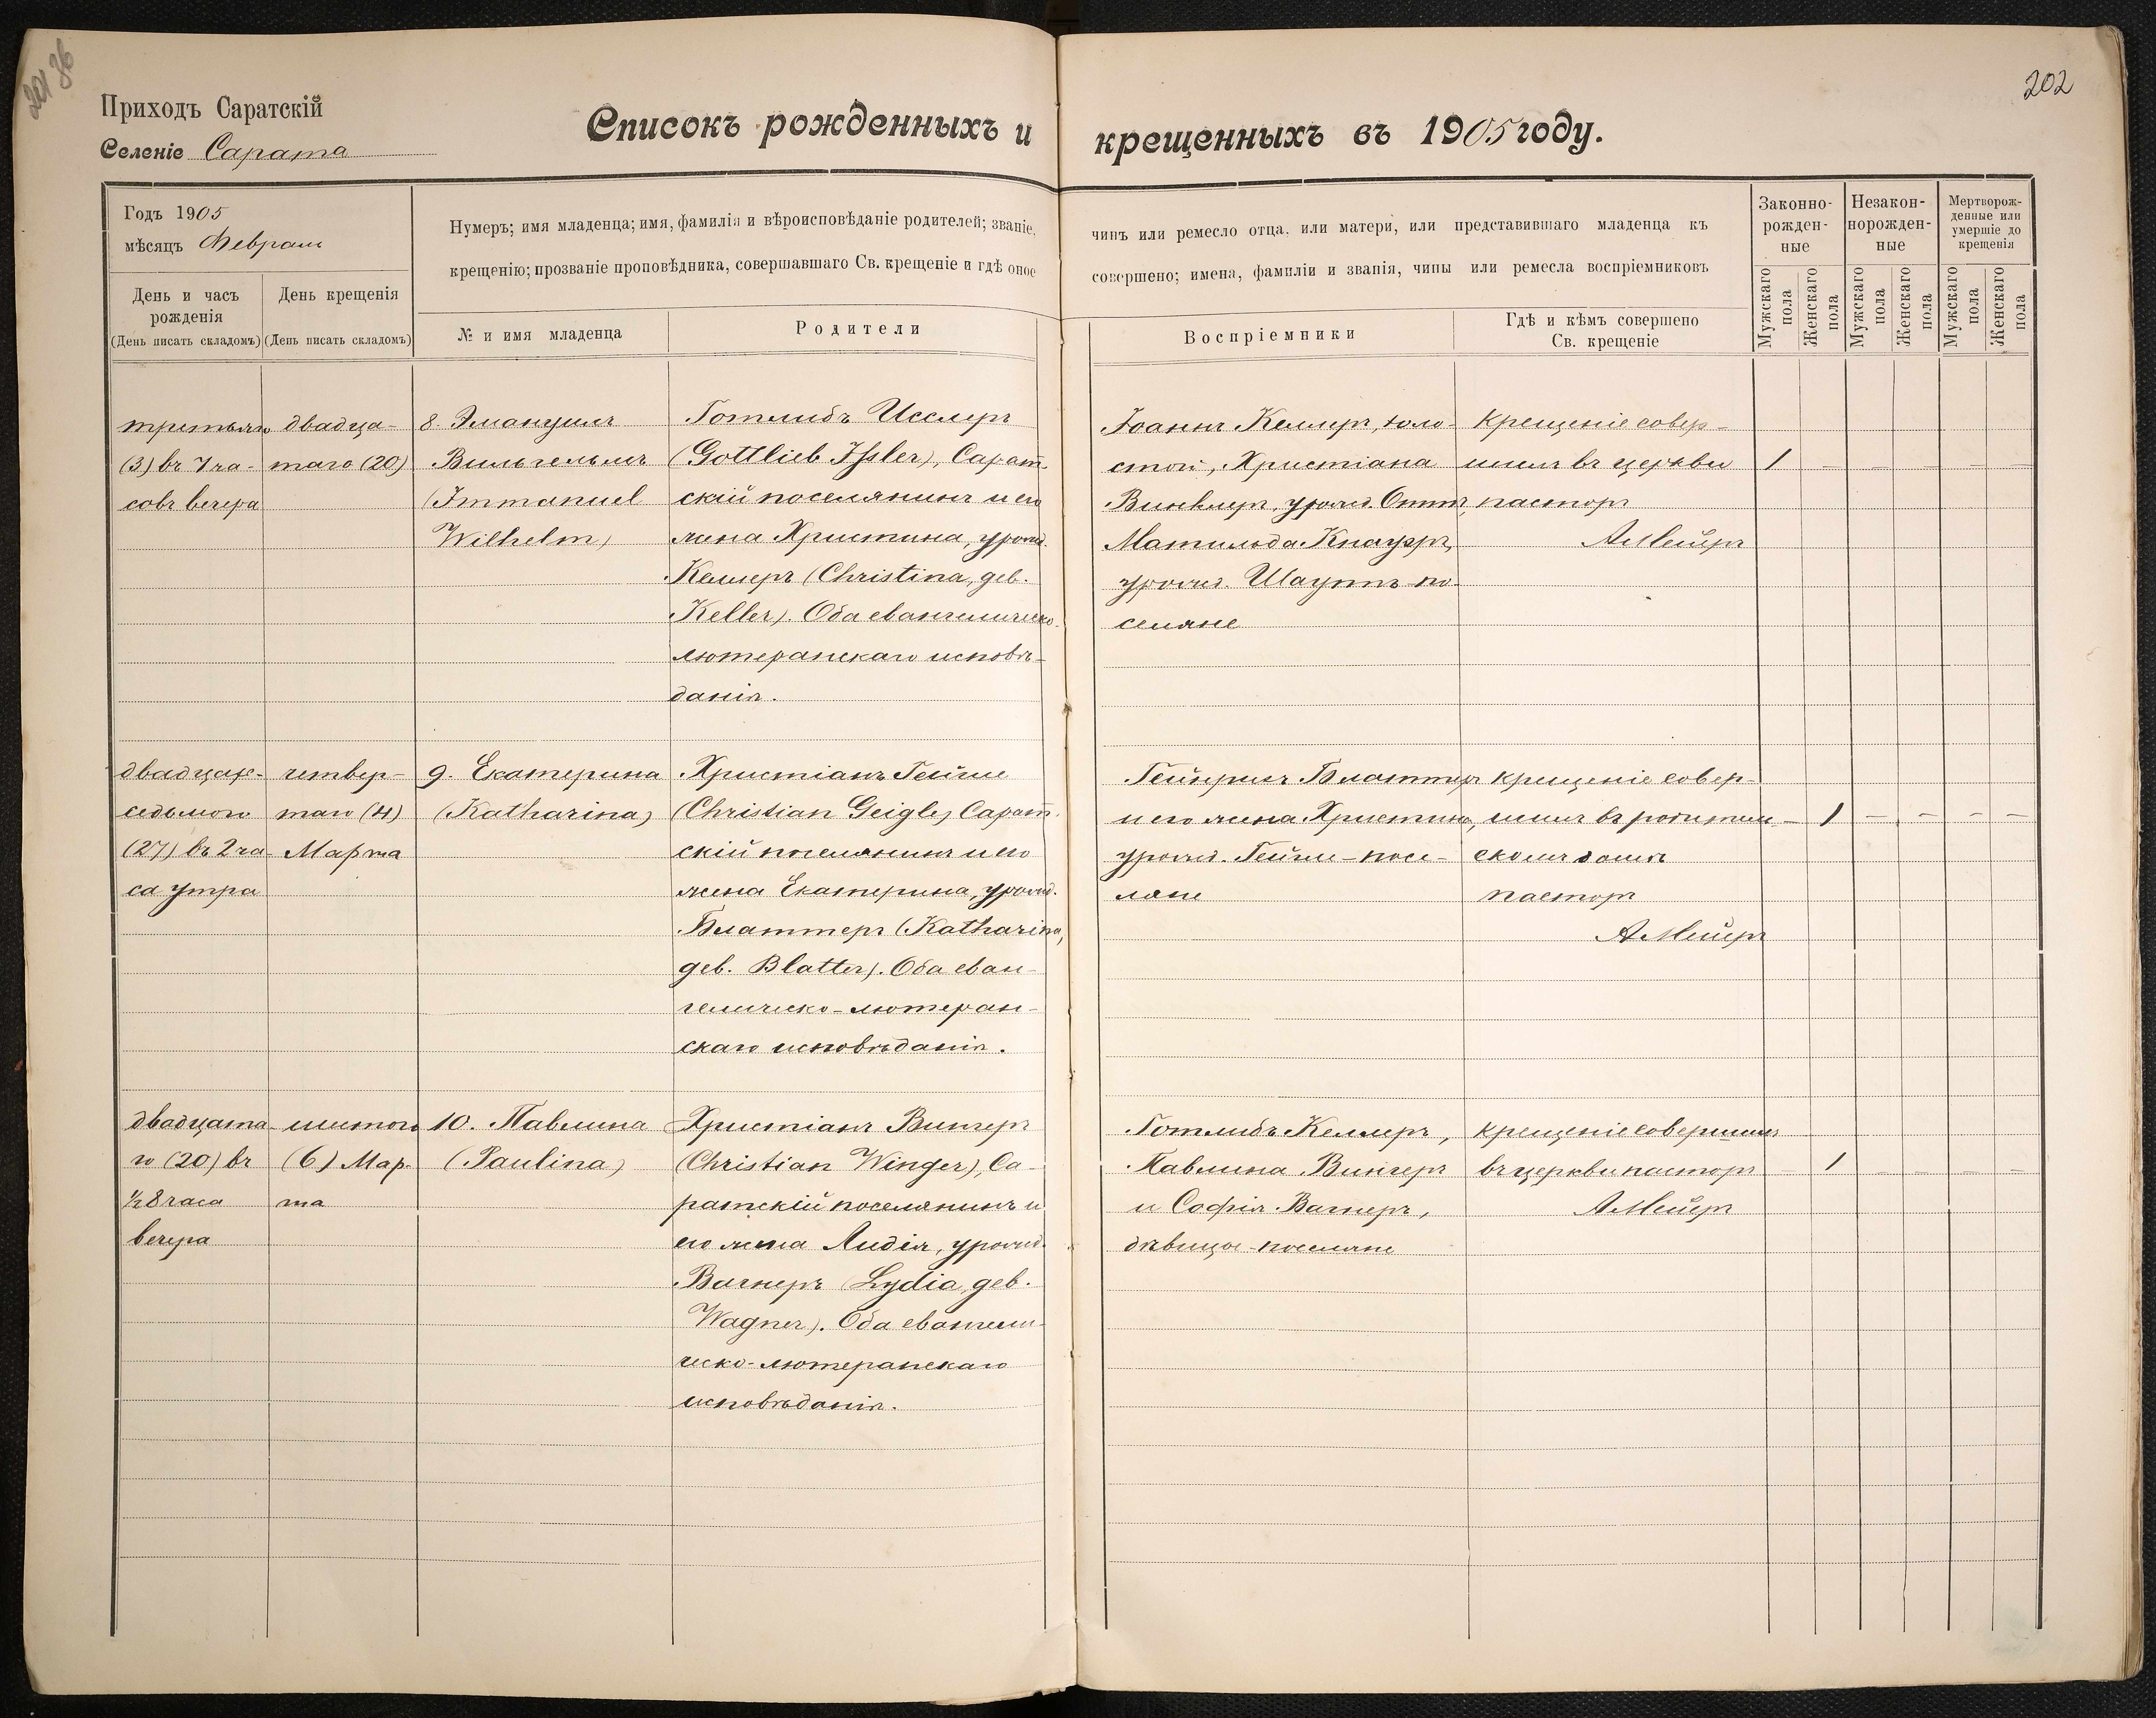 202
Приходъ Саратскій
Селеніе Сарата
Списокъ рожденныхъ и крещенныхъ въ 1905 году.
Годъ 1905
мѣсяцъ Февраль
Нумеръ; имя младенца; имя, фамилія и вѣроисповѣданіе родителей; званіе, чинъ или ремесло отца, или матери, или представившаго младенца къ
крещенію; прозваніе проповѣдника, совершавшаго Св. крещеніе и гдѣ оное совершено; имена, фамиліи и званія, чины или ремесла воспріемниковъ
День и часъ рожденія
(День писать складомъ)
День крещенія
(День писать складомъ)
№ и имя младенца
Родители
Воспріемники
Гдѣ и кѣмъ совершено
Св. крещеніе
Законно-
рожден-
ные
Незакон-
норожден-
ные
Мертворож-
денные или
умершіе до
крещенія
Мужскаго пола
Женскаго пола
Мужскаго пола
Женскаго пола
Мужскаго пола
Женскаго пола
третьяго
(3) въ 7 ча-
совъ вечера
двадца-
таго (20)
8. Эмануилъ
Вильгельмъ
(Immanuel
Wilhelm)
Готлибъ Исслеръ
(Gottlieb Issler), Сарат-
скій поселянинъ и его
жена Христина, урожд.
Келлеръ (Christina, geb.
Keller). Оба евангелическо-
лютеранскаго исповѣ-
данія.
Іоаннъ Келлеръ, холо-
стой, Христіана
Винклеръ, урожд. Оттъ,
Матильда Кнауэръ,
урожд. Шауптъ - по-
селяне
крещеніе совер-
шилъ въ церкви
пасторъ
А Мейеръ
1 - - - - -
двадцать-
седьмого
(27) въ 2 ча-
са утра
четвер-
таго (4)
Марта
9. Екатерина
(Katharina)
Христіанъ Гейгле
(Christian Geigle) Сарат-
скій поселянинъ и его
жена Екатерина, урожд.
Блаттеръ (Katharina,
geb. Blatter). Оба еван-
гелическо-лютеран-
скаго исповѣданія.
Гейнрихъ Блаттеръ
и его жена Христина,
урожд. Гейгле - посе-
ляне
крещеніе совер-
шилъ въ родитель-
скомъ домѣ
пасторъ
А Мейеръ
- 1 - - - -
двадцата-
го (20) въ
½ 8 часа
вечера
шестого
(6) Мар-
та
10. Павлина
(Paulina)
Христіанъ Вингеръ
(Christian Winger), Са-
ратскій поселянинъ и
его жена Лидія, урожд.
Вагнеръ (Lydia, geb.
Wagner). Оба евангели-
ческо-лютеранскаго
исповѣданія.
Готлибъ Келлеръ,
Павлина Вингеръ
и Софія Вагнеръ,
дѣвицы - поселяне
крещеніе совершилъ
въ церкви пасторъ
А Мейеръ
1 - - - -